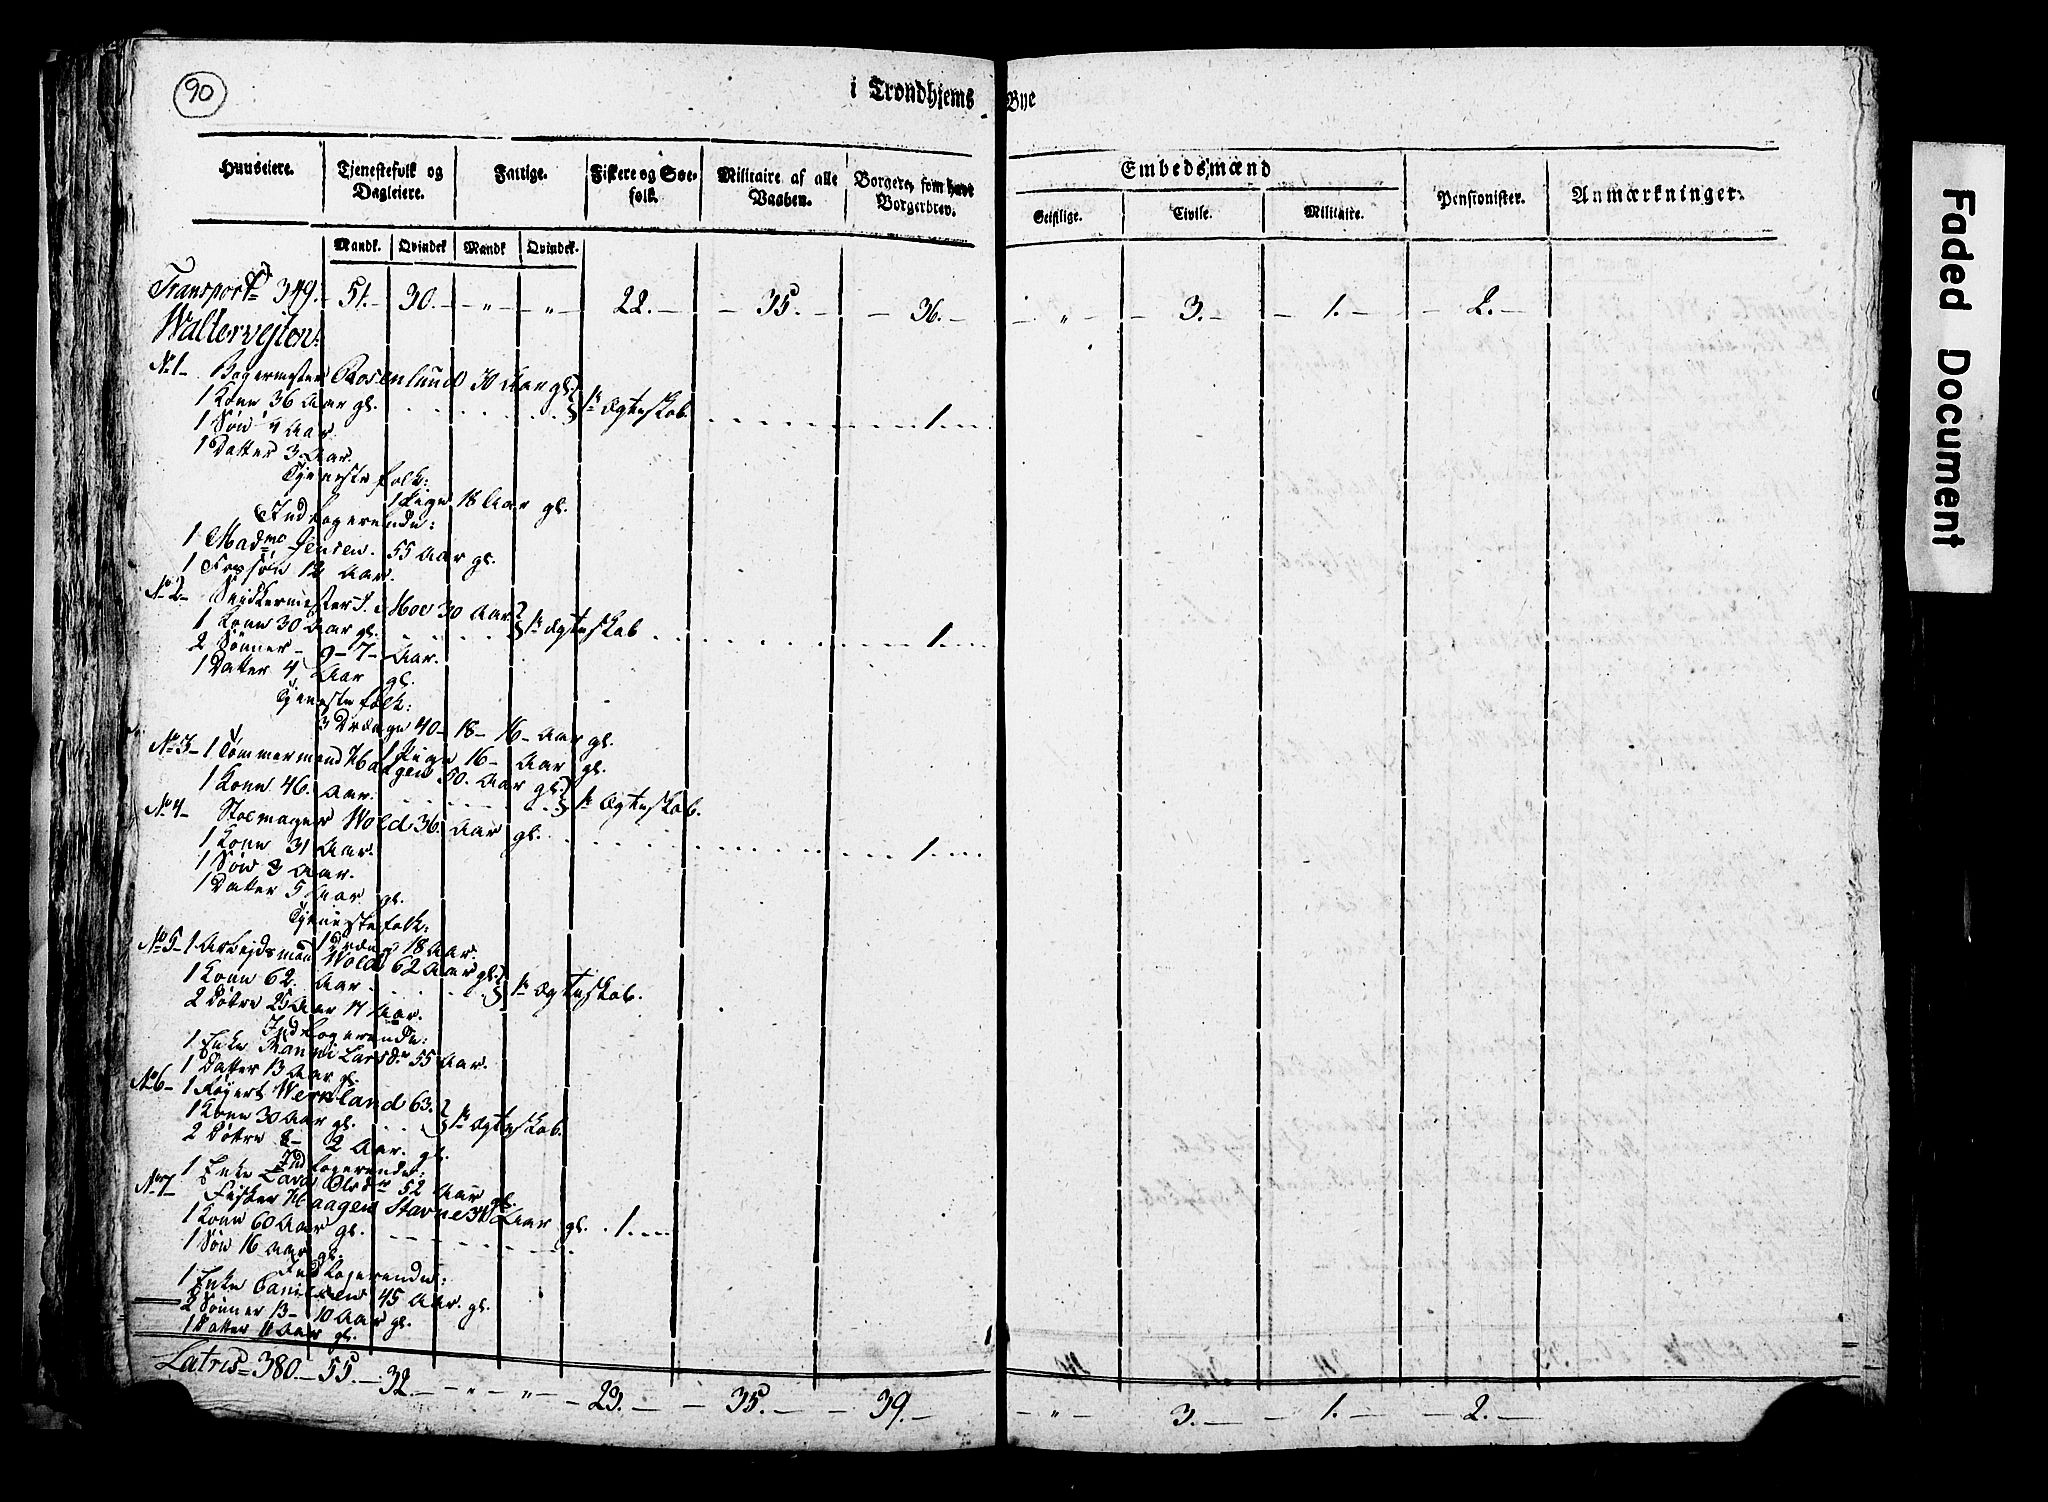 90
i Trondhjems Bye
Huuseiere. Tjenestefolk og Dagleiere. Fattige. Fiskere og Søefolk. Militaire af alle Vaaben. Borgere, som have Borgerbrev. Embedsmænd Pensionister. Anmærkninger.
Geistlige. Civile. Militaire.
Mandk. Qvindek Mandk Qvindek.
Transport 349. 51. 30. " " 22. 35. 36. " 3. 1. 2.
No 1 Bagermester Rosenlund 30 Aar gl.
1 Kone 36 Aar gl. 1te Ægteskab. 1.
1 Søn 4 Aar
1 Datter 3 Aar.
Tjenestefolk:
1 Pige 18 Aar gl.
Indlogerende:
1 Madme Jensen. 55 Aar gl.
12 Aar.
No 2 Snidkermester J. Moe 30 Aar
1 Kone 30 Aar gl. 1te Ægteskab 1.
2 Sønner 9 - 7 - Aar.
1 Datter 4 Aar gl.
Tjenestefolk:
3 Drænge 40 - 18 - 16 - Aar gl.
1 Pige 16 - Aar gl.
No 3 1 Tømmermand Haagen 50. Aar gl.
1 Kone 46. Aar. 1te Ægteskab.
No 4 Stolmager Wold 36. Aar gl. 1.
1 Kone 31 Aar.
1 Søn 3 Aar.
1 Datter 5 Aar gl.
Tjenestefolk:
1 Dræng 18 Aar.
No 5 1 Arbejdsmand Wold 62 Aar gl.
1 Kone 62. Aar 1te Ægteskab.
2 Døtre 25 Aar 17 Aar.
Indlogerende:
1 Enke Larsdr 55 Aar.
1 Datter 13 Aar gl.
No 6 1 Wermland 63.
1 Kone 30 Aar gl. 1te Ægteskab.
2 Døtre 8 - 2 Aar. gl.
Indlogerende:
1 Enke Olsdr 52 Aar gl.
No 7 Fisker Haagen Stavne Aar gl. 1.
1 Kone 60 Aar gl.
1 Søn 16 Aar gl.
Indlogerende:
1 Enke Danielsen 45 Aar. gl.
2 Sønner 13 - 10 Aar gl.
1 Datter 11 Aar gl.
Latris 380. 55. 32. " " 23. 35. 39. " 3. 1. 2.
Faded Document